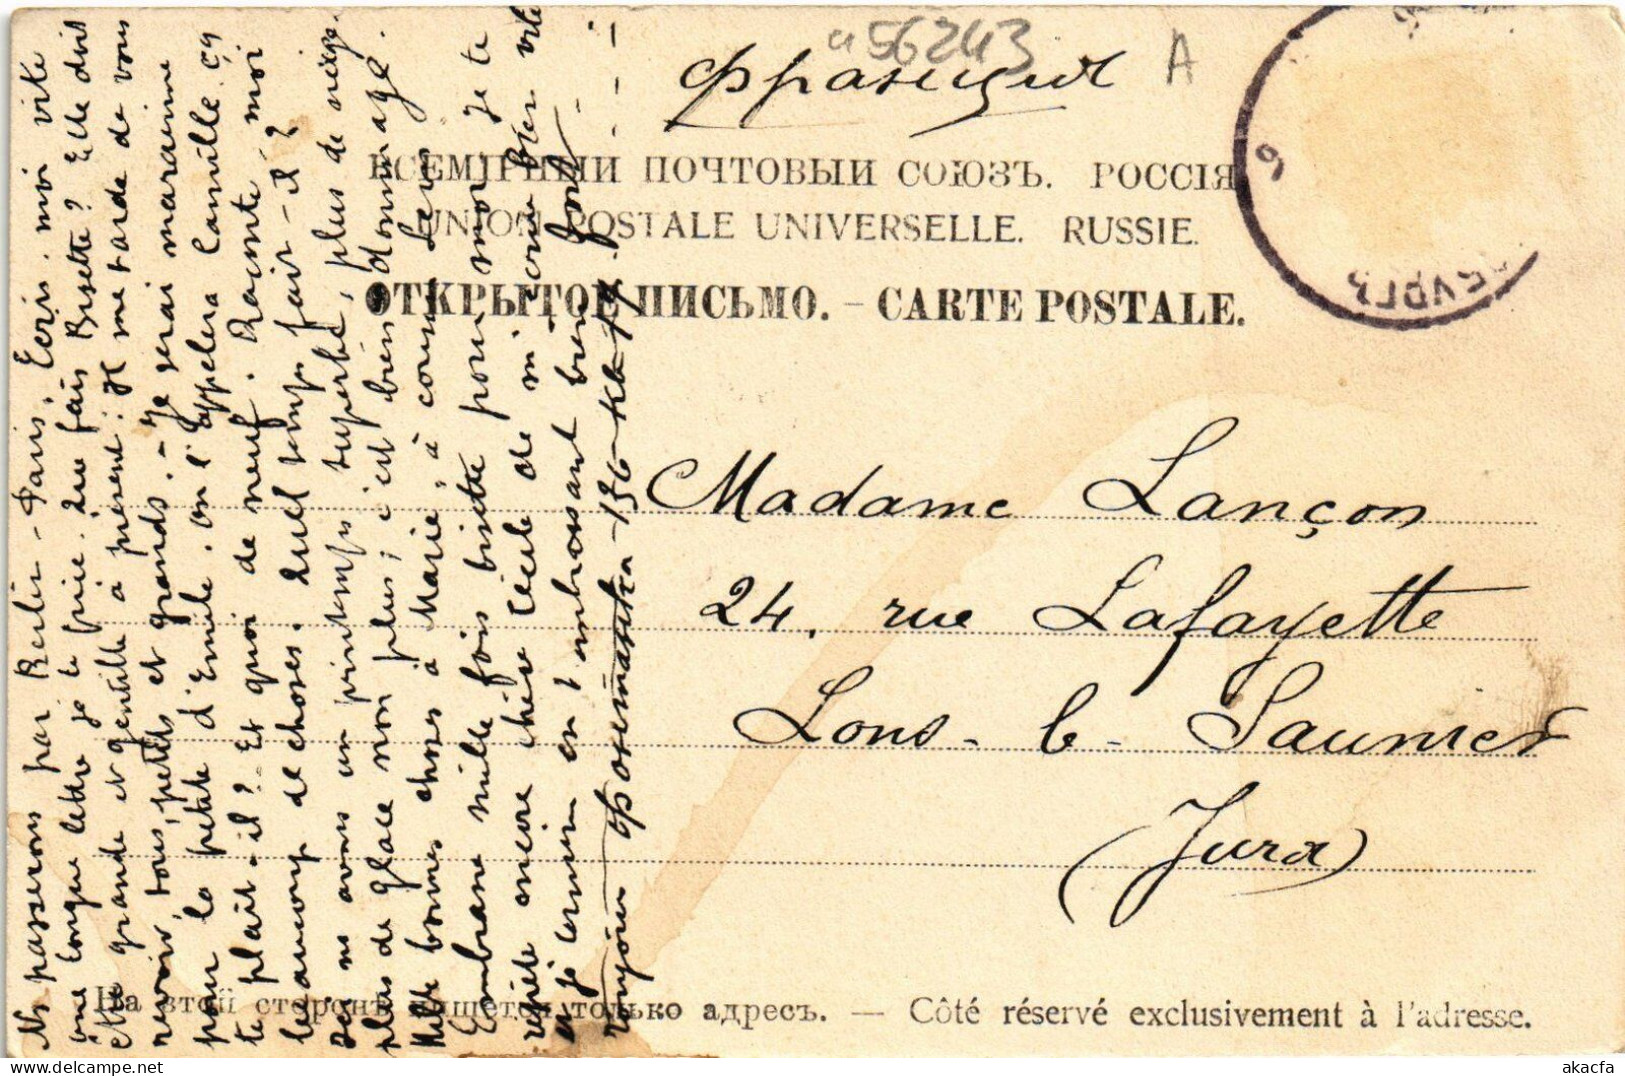 56243
A
Франция
ВСЕМІРНЫЙ ПОЧТОВЫЙ СОЮЗЪ. РОССІЯ
UNION POSTALE UNIVERSELLE. RUSSIE.
ОТКРЫТОЕ ПИСЬМО. – CARTE POSTALE.
6
БУРГЪ
Madame Lançon
24, rue Lafayette
Lons-le-Saunier
(Jura)
На этой сторонѣ пишется только адресъ. — Côté réservé exclusivement à l'adresse.
Ns passerons par Berlin - Paris. Ecris-moi vite
une longue lettre je te prie. Que fais Bisette? Elle doit
être grande et gentille à présent: Il me tarde de vous
revoir, tous, petits et grands. - Je serai marraine
pour la petite d'Emile. On l'appelera Camille. Ça
te plaît-il? Et quoi de neuf. Raconte-moi
beaucoup de choses. Quel temps fait-il?
Ici ns avons un printemps superbe, plus de neige
plus de glace non plus; c'est bien dommage.
Mille bonnes choses à Marie, à cousin
Embrasse mille fois bisette pour moi. Je te
répète encore chère Cécile de m'écrire bien vite
et je termine en t'embrassant bien fort
toujours Фонтанка 136 кв
akacfa